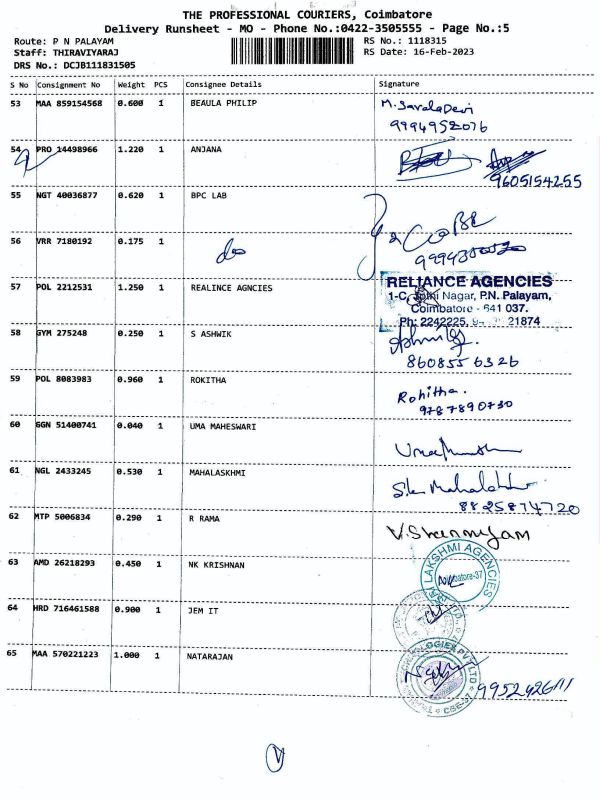 THE PROFESSIONAL COURIERS, Coimbatore
Delivery Runsheet - MO - Phone No.:0422-3505555 - Page No.:5
Route: P N PALAYAM RS No.: 1118315
Staff: THIRAVIYARAJ RS Date: 16-Feb-2023
DRS No.: DCJB111831505
S No Consignment No Weight PCS Consignee Details Signature
53 MAA 859154568 0.600 1 BEAULA PHILIP M. Sarala Devi
9994952076
54 PRO 14498966 1.220 1 ANJANA
9605154255
55 NGT 40036877 0.620 1 BPC LAB
56 VRR 7180192 0.175 1 do
57 POL 2212531 1.250 1 REALINCE AGNCIES RELIANCE AGENCIES
1-C, Nagar, P.N. Palayam,
Coimbatore - 641 037.
Ph: 2242225, 21874
58 GYM 275248 0.250 1 S ASHWIK
8608556326
59 POL 8083983 0.960 1 ROKITHA Rohitha.
9787890730
60 GGN 51400741 0.040 1 UMA MAHESWARI
61 NGL 2433245 0.530 1 MAHALASKHMI
8825874720
62 MTP 5006834 0.290 1 R RAMA
63 AMD 26218293 0.450 1 NK KRISHNAN SRI LAKSHMI AGENCIES
64 HRD 716461588 0.900 1 JEM IT
65 MAA 570221223 1.000 1 NATARAJAN